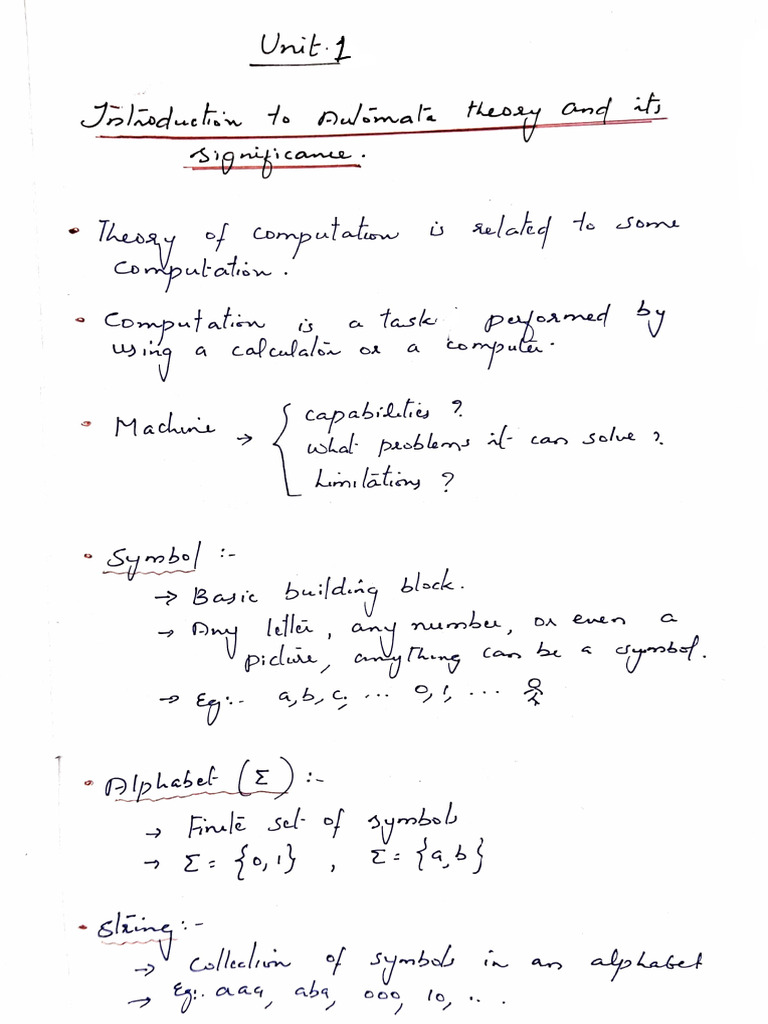 Unit.1
Introduction to Automata theory and its
significance.
• Theory of computation is related to some
computation.
• Computation is a task performed by
using a calculator or a computer.
• Machine → { capabilities ?
what problems it can solve ?
Limitations ?
• Symbol :-
→ Basic building block.
→ Any letter, any number, or even a
picture, anything can be a symbol.
→ Eg:- a,b,c, ... 0,1, ...
• Alphabet (Σ) :-
→ Finite set of symbols
→ Σ = {0,1} , Σ = {a,b}
• String :-
→ Collection of symbols in an alphabet
→ Eg:- aaa, aba, 000, 10, ...